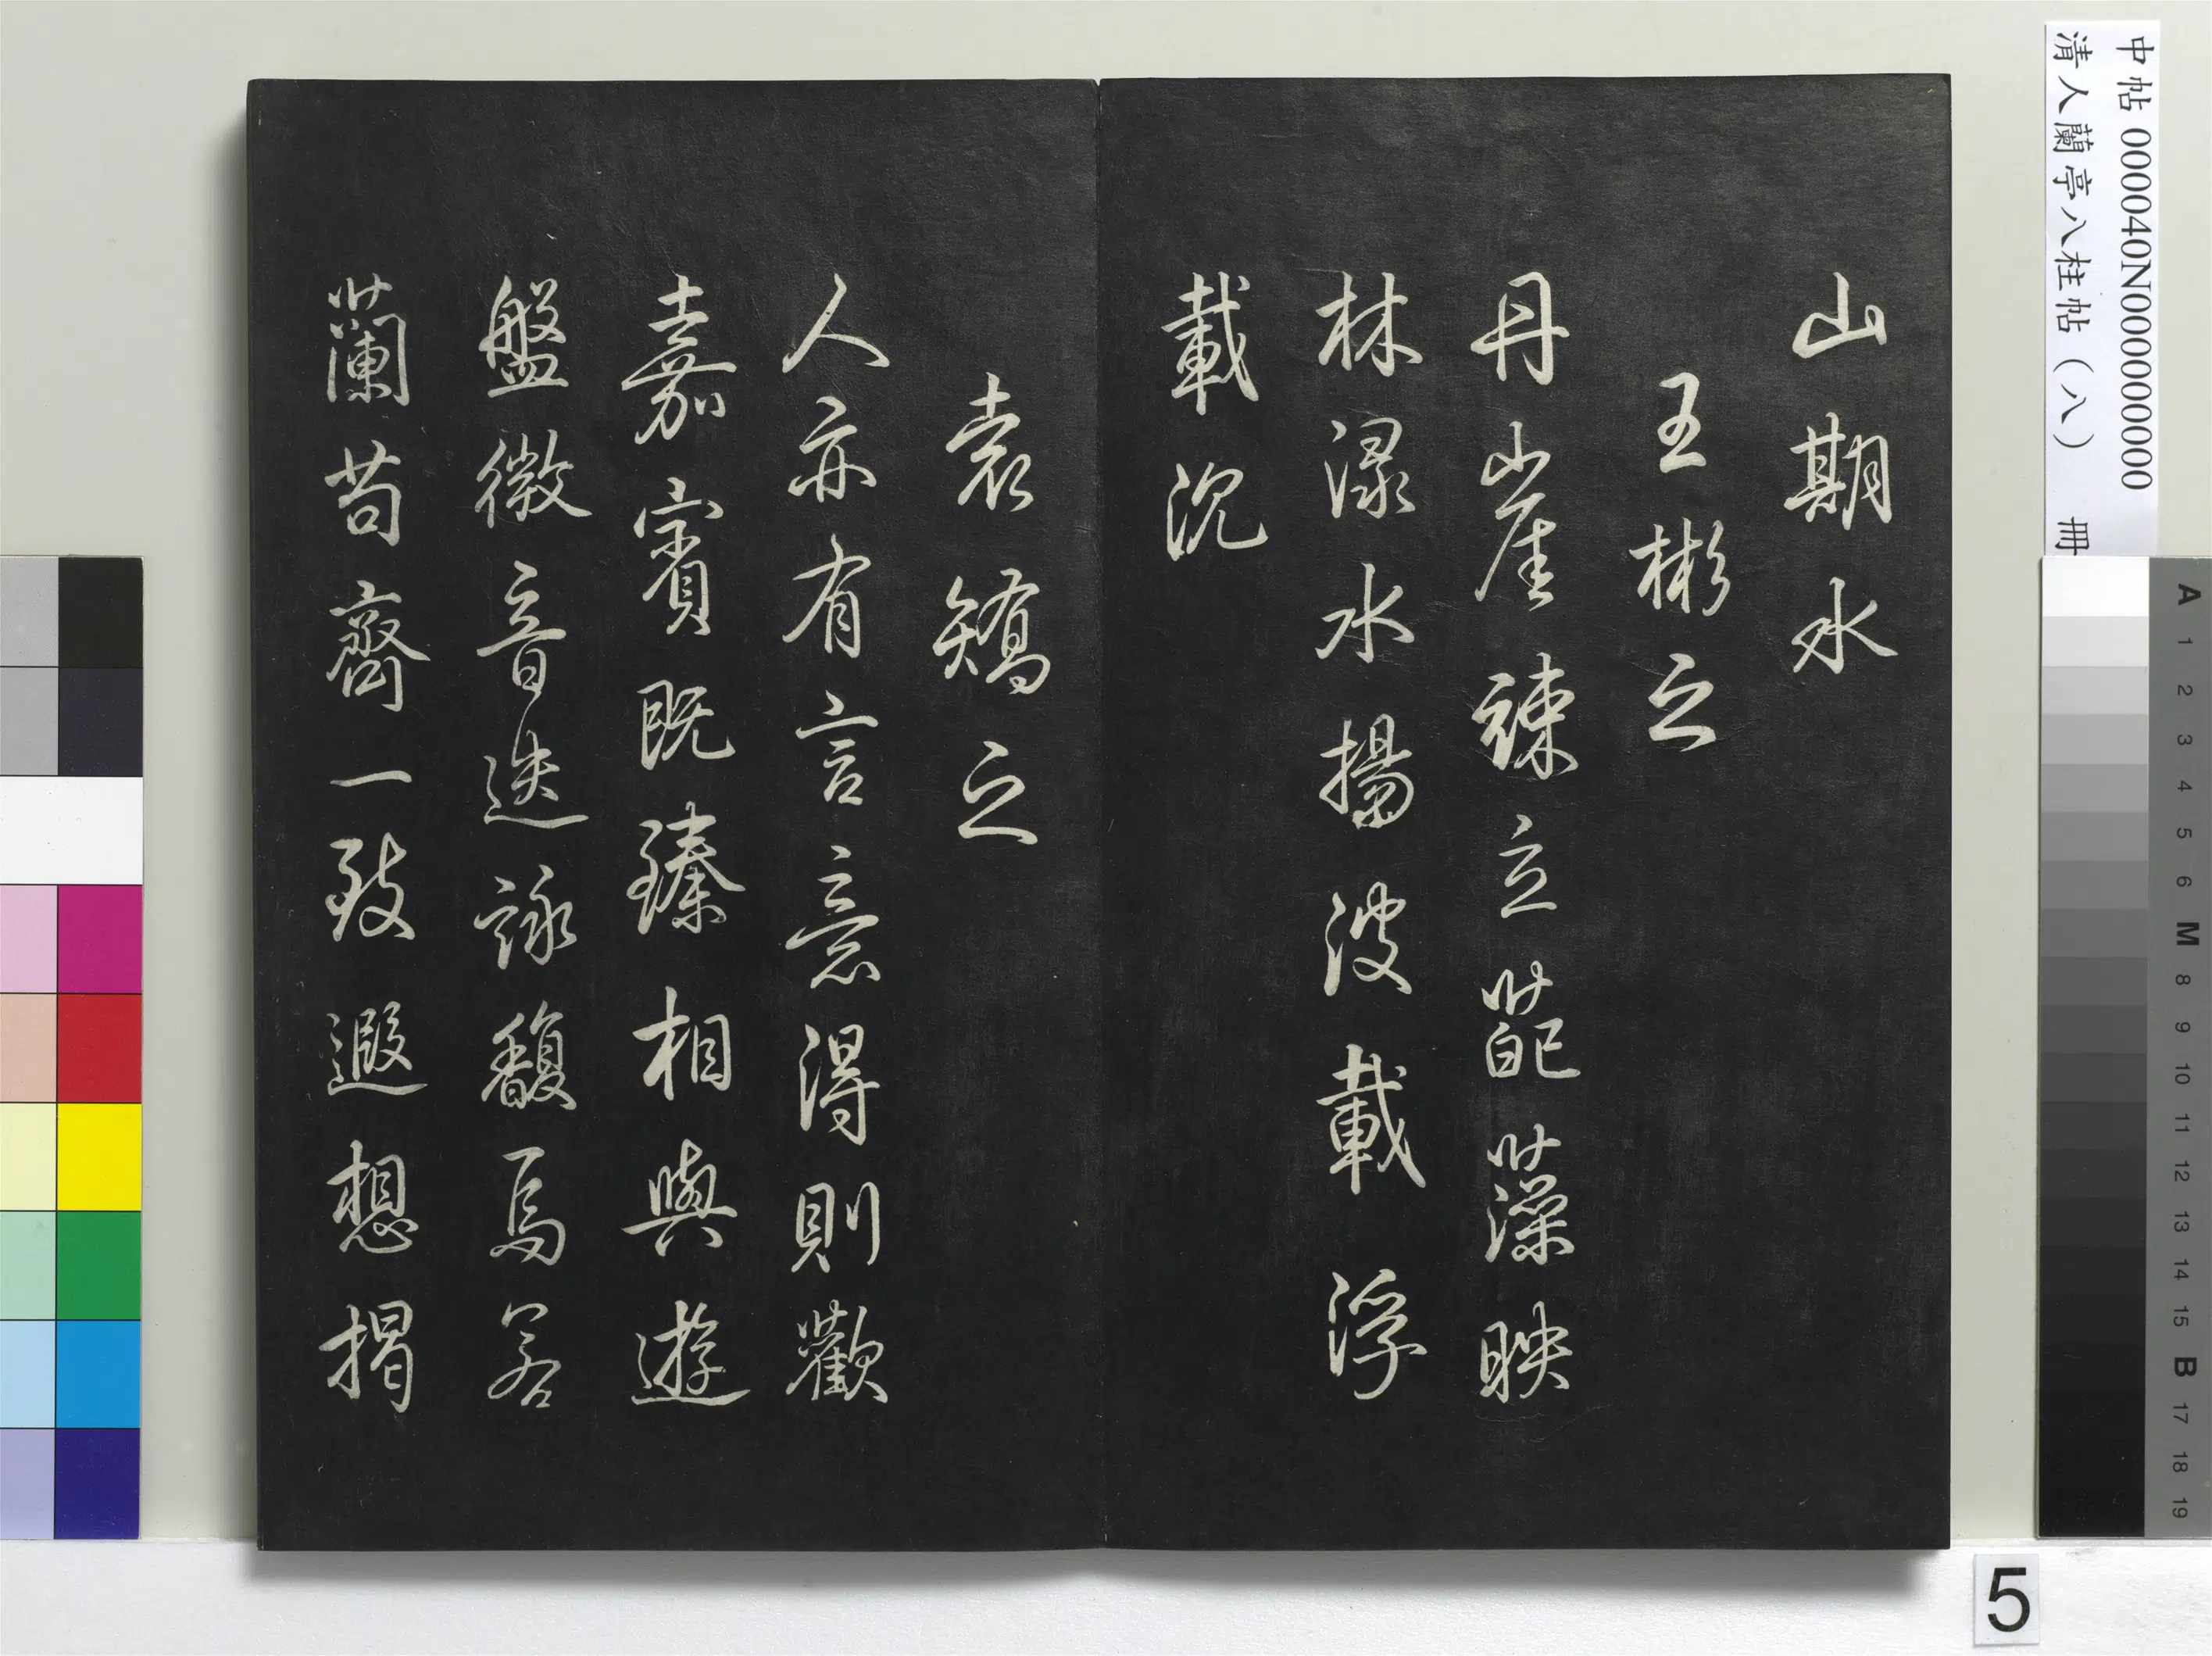 中帖 000040N000000000
清人蘭亭八柱帖（八） 冊
山期水
王彬之
丹崖竦立葩藻映
林渌水揚波載浮
載沉
袁矯之
人亦有言意得則歡
嘉賓既臻相與遊
盤微音迭詠馥焉若
蘭苟齊一致遐想揭
A 1 2 3 4 5 6 M 8 9 10 11 12 13 14 15 B 17 18 19
5